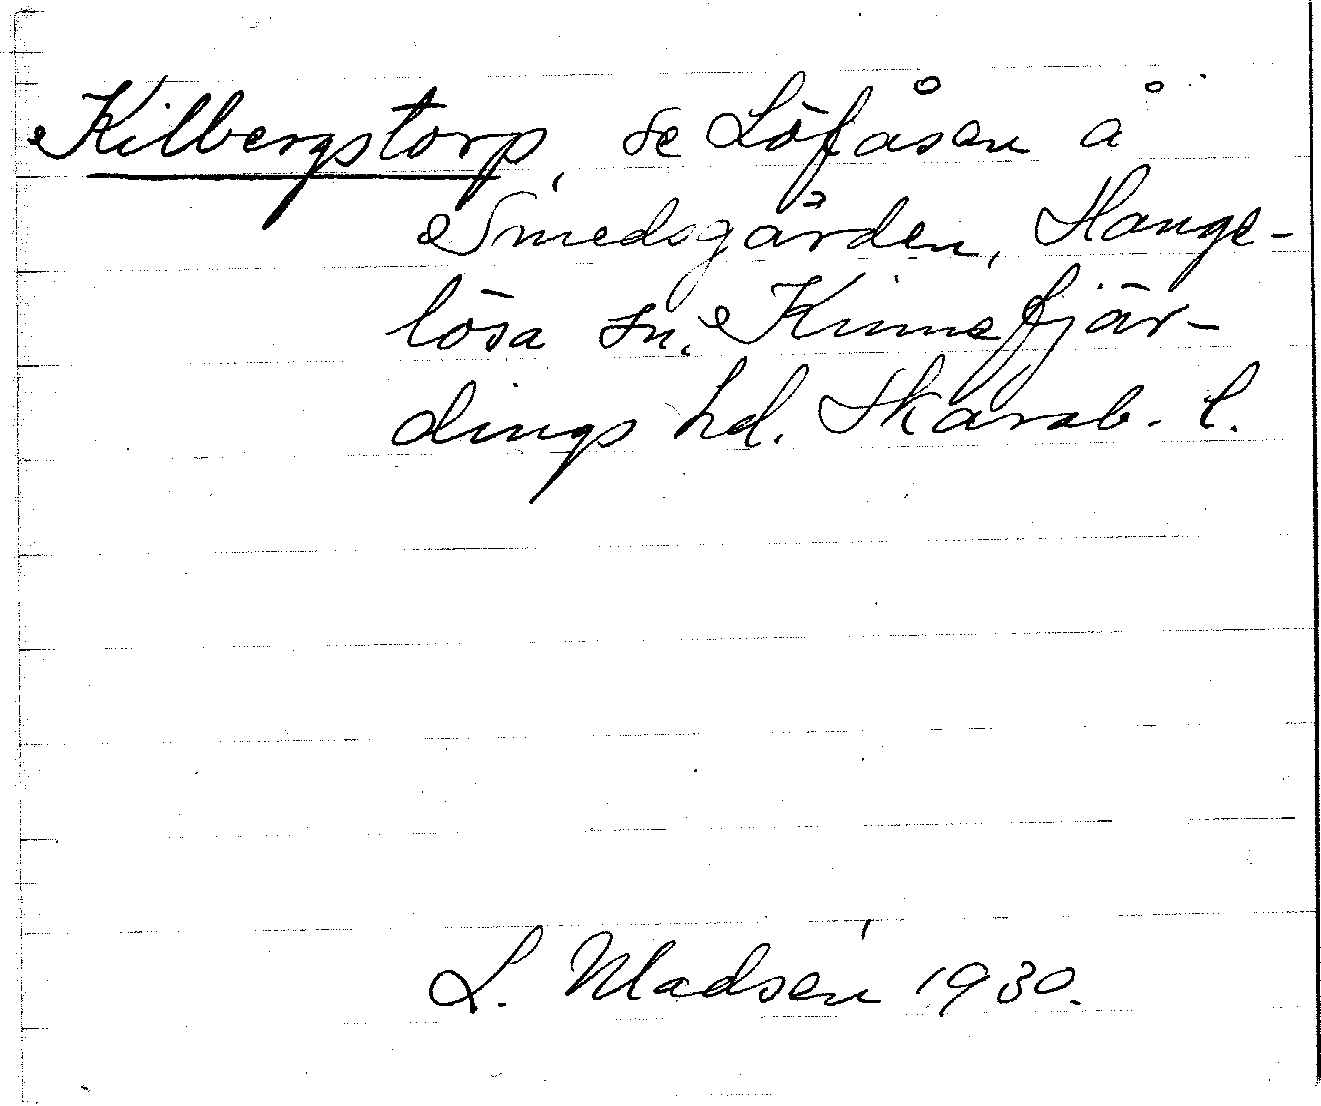 Kilbergstorp, se Löfåsen å
Smedsgården, Hange-
lösa sn. Kinnefjär-
dings hd. Skarab. l.
L. Madsén 1930.